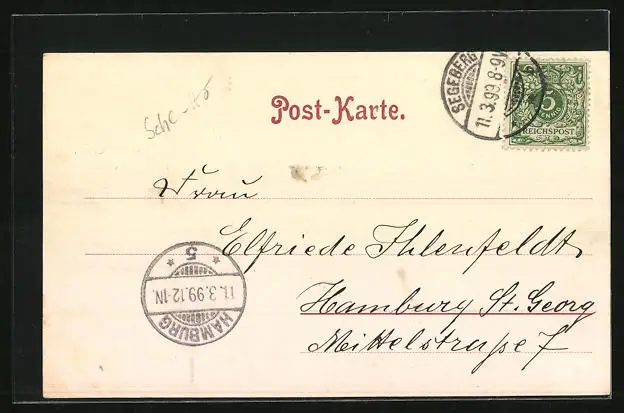 SEGEBERG
11.3.99.8-9V
5
REICHSPOST
Post-Karte.
Frau
Elfriede Ihlenfeldt,
Hamburg St. Georg
Mittelstraße 7
HAMBURG
11.3.99.12-1N.
* 5 *